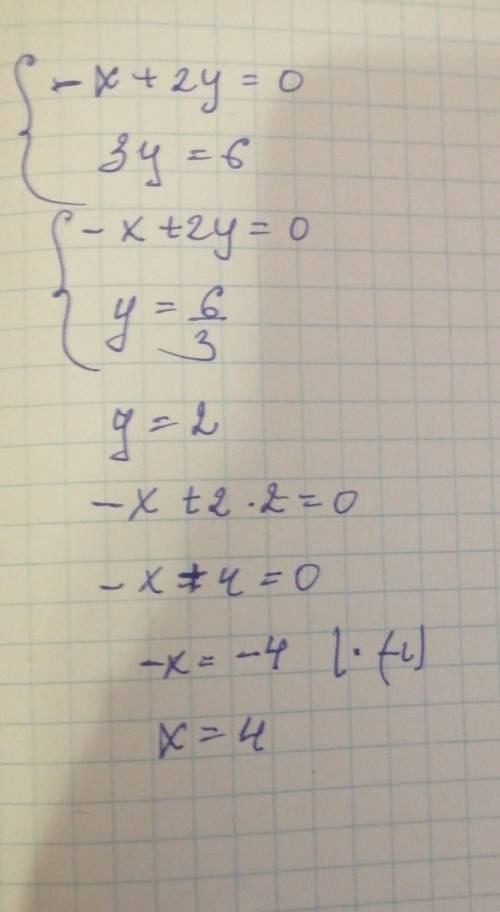 { -x + 2y = 0
3y = 6
{ -x + 2y = 0
y = 6/3
y = 2
-x + 2 · 2 = 0
-x + 4 = 0
-x = -4 | · (-1)
x = 4